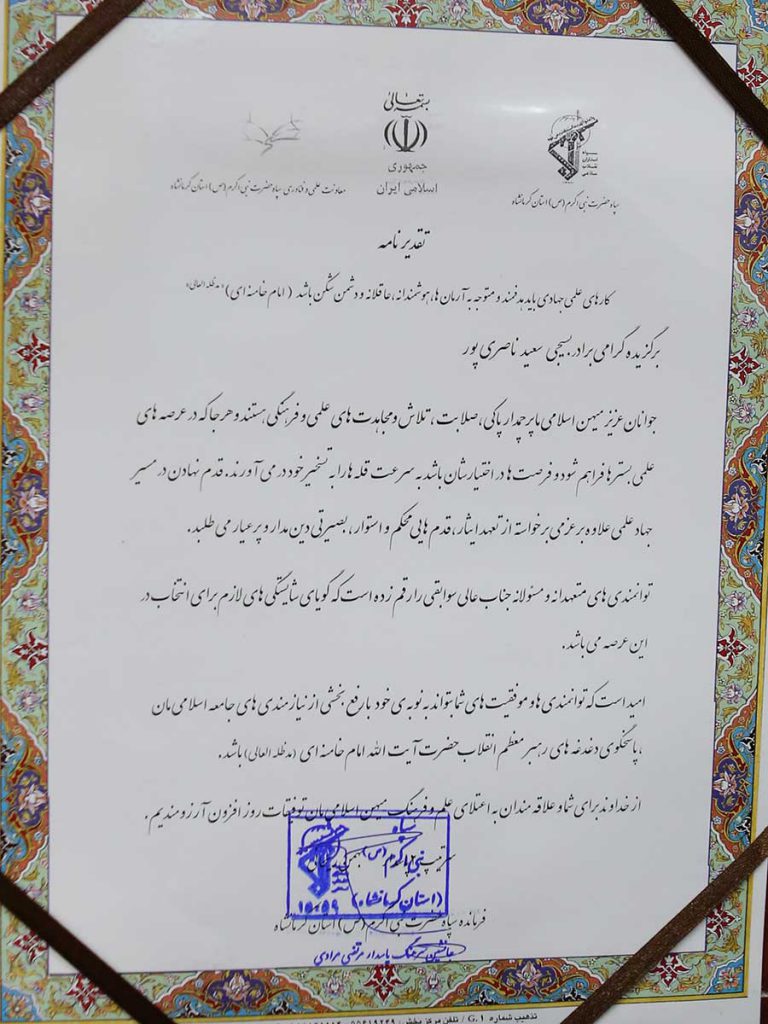 بسمه تعالی
جمهوری
اسلامی ایران
سپاه
پاسداران
انقلاب
اسلامی
سپاه حضرت نبی اکرم (ص) استان کرمانشاه
معاونت علمی و فناوری سپاه حضرت نبی اکرم (ص) استان کرمانشاه
تقدیرنامه
کارهای علمی جهادی باید هدفمند و متوجه به آرمان ها، هوشمندانه، عاقلانه و دشمن شکن باشد ( امام خامنه ای) «مدظله العالی»
برگزیده گرامی برادر بسیجی سعید ناصری پور
جوانان عزیز میهن اسلامی ما پرچمدار پاکی، صلابت، تلاش و مجاهدت های علمی و فرهنگی هستند و هر جا که در عرصه های
علمی بسترها فراهم شود و فرصت ها در اختیارشان باشد به سرعت قله ها را به تسخیر خود در می آورند. قدم نهادن در مسیر
جهاد علمی علاوه بر عزمی برخواسته از تعهد ایثار، قدم هایی محکم و استوار، بصیرتی دین مدار و پر عیار می طلبد.
توانمندی های متعهدانه و مسئولانه جناب عالی سوابقی را رقم زده است که گویای شایستگی های لازم برای انتخاب در
این عرصه می باشد.
امید است که توانمندی ها و موفقیت های شما بتواند به نوبه ی خود با رفع بخشی از نیازمندی های جامعه اسلامی مان
، پاسخگوی دغدغه های رهبر معظم انقلاب حضرت آیت الله امام خامنه ای (مدظله العالی) باشد.
از خداوند برای شما و علاقه مندان به اعتلای علم و فرهنگ میهن اسلامی مان توفیقات روز افزون آرزومندیم.
سرتیپ ۲
سپاه
نبی اکرم (ص)
(استان کرمانشاه)
۱۵-۵۹
فرمانده سپاه حضرت نبی اکرم (ص) استان کرمانشاه
جانشین سرهنگ پاسدار مرتضی مرادی
تذهیب شماره G.1 / تلفن مرکز پخش: